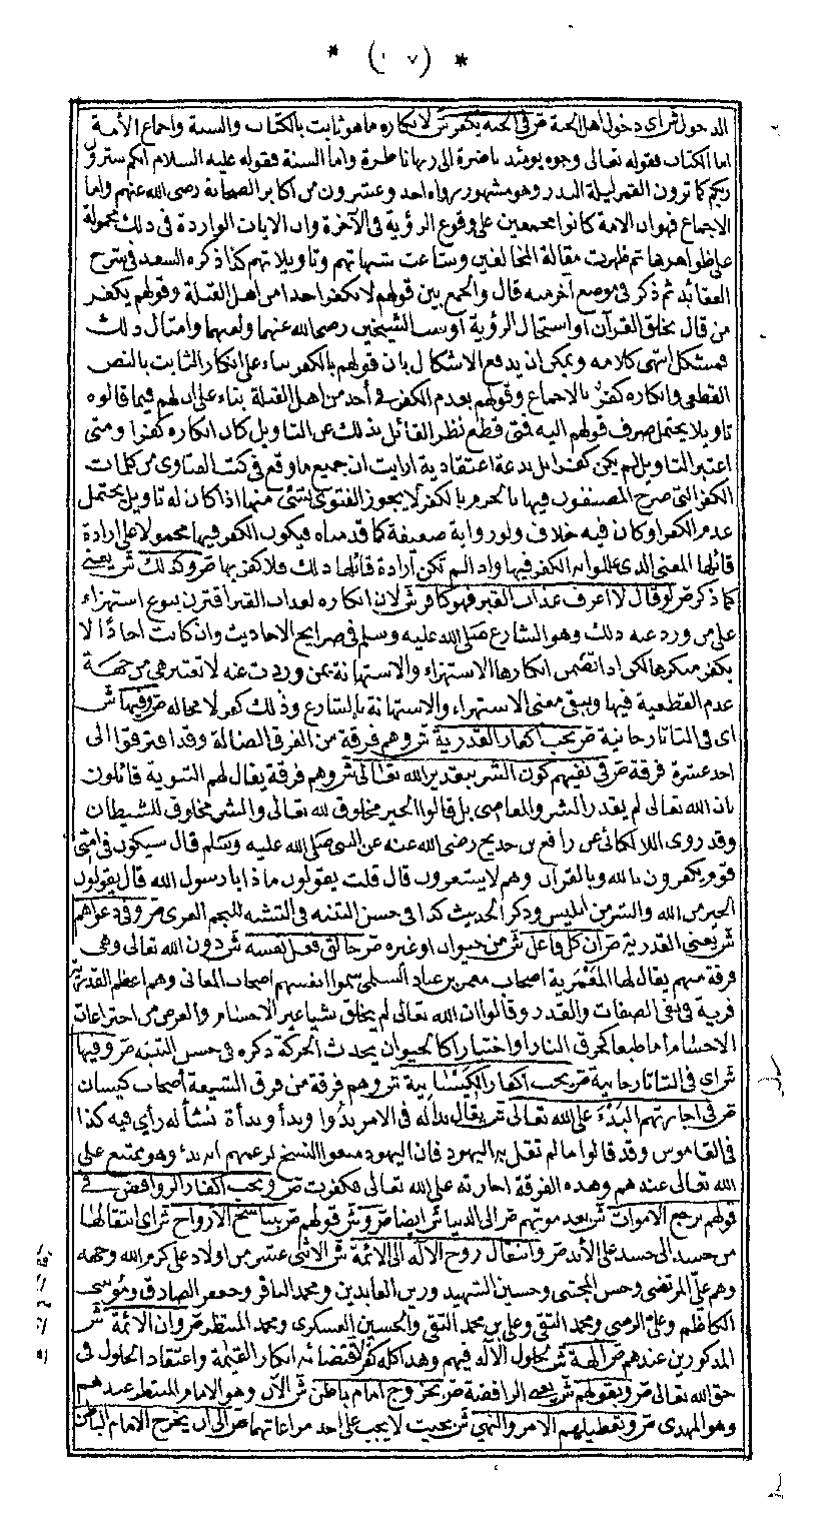 * (١٠٧) *
الدخول ش أي دخول أهل الجنة ص في الجنة يكفر ش لانكاره ما هو ثابت بالكتاب والسنة واجماع الأمة
اما الكتاب فقوله تعالى وجوه يومئذ ناضرة الى ربها ناظرة واما السنة فقوله عليه السلام انكم سترون
ربكم كما ترون القمر ليلة البدر وهو مشهور رواه احد وعشرون من اكابر الصحابة رضي الله عنهم واما
الاجماع فهو ان الامة كانوا مجمعين على وقوع الرؤية في الآخرة وان الايات الواردة في ذلك محمولة
على ظواهرها ثم ظهرت مقالة المخالفين وشاعت شبهاتهم وتاويلاتهم كذا ذكره السعد في شرح
العقائد ثم ذكر في موضع آخر منه قال والجمع بين قولهم لا نكفر احدا من اهل القبلة وقولهم يكفر
من قال بخلق القرآن او استحال الرؤية او سب الشيخين رضي الله عنهما ولعنهما وامثال ذلك
فمشكل انتهى كلامه ويمكن ان يدفع الاشكال بان قولهم بالكفر بناء على انكار الثابت بالنص
القطعي وانكاره كفر بالاجماع وقولهم بعدم الكفر في أحد من اهل القبلة بناء على ان لهم فيما قالوه
تاويلا يحتمل صرف قولهم اليه فمتى قطع نظر القائل بذلك عن التاويل كان انكاره كفرا ومتى
اعتبر التاويل لم يكن كفرا بل بدعة اعتقادية ارايت ان جميع ما وقع في كتب الفتاوى من كلمات
الكفر التي صرح المصنفون فيها بالجزم بالكفر لا يجوز الفتوى بشئ منها اذا كان له تاويل يحتمل
عدم الكفر او كان فيه خلاف ولو رواية ضعيفة كما قدمناه فيكون الكفر فيها محمولا على ارادة
قائلها المعنى الذي عللوا به الكفر فيها واذا لم تكن ارادة قائلها ذلك فلا كفر بها ص وكذلك ش يعني
كما ذكر ص لو قال لا اعرف عذاب القبر فهو كافر ش لان انكاره لعذاب القبر اقترن بنوع استهزاء
على من ورد عنه ذلك وهو الشارع صلى الله عليه وسلم في صرايح الاحاديث وان كانت احادا لا
يكفر منكرها لكن اذا تضمن انكارها الاستهزاء والاستهانة بمن وردت عنه لا تعتبر هي من جهة
عدم القطعية فيها ويبقى معنى الاستهزاء والاستهانة بالشارع وذلك كفر لا محاله ص وفيها ش
اى في التاتارخانية ص يجب اكفار القدرية ش وهم فرقة من الفرق الضالة وقد افترقوا الى
احد عشرة فرقة ص في نفيهم كون الشر بتقدير الله تعالى ش وهم فرقة يقال لهم الثنوية قائلون
بان الله تعالى لم يقدر الشر والمعاصى بل قالوا الخير مخلوق لله تعالى والشر مخلوق للشيطان
وقد روى اللالكائي عن رافع بن خديج رضي الله عنه عن النبي صلى الله عليه وسلم قال سيكون في امتي
قوم يكفرون بالله وبالقرآن وهم لا يشعرون قال قلت يقولون ماذا يا رسول الله قال يقولون
الخير من الله والشر من ابليس وذكر الحديث كذا في حسن التنبه في التشبه للنجم الغزي ص وفي دعواهم
ش يعني القدرية ص ان كل فاعل ش من حيوان او غيره ص خالق فعل نفسه ش دون الله تعالى وهي
فرقة منهم يقال لها المعمرية اصحاب معمر بن عباد السلمي سموا انفسهم اصحاب المعاني وهم اعظم القدرية
فرية في نفي الصفات والقدر وقالوا ان الله تعالى لم يخلق شيا غير الاجسام والعرض من اختراعات
الاجسام أما طبعا كحرق النار او اختيارا كالحيوان يحدث الحركة ذكره في حسن التنبه ص وفيها
ش اى في التاتارخانية ص يجب اكفار الكيسانية ش وهم فرقة من فرق الشيعة أصحاب كيسان
ص في اجازتهم البدء على الله تعالى ش يقال بدا له في الامر بدوا وبدأ وبدأة نشأ له رأي فيه كذا
في القاموس وقد قالوا ما لم تقل به اليهود فان اليهود منعوا النسخ لزعمهم انه بدء وهو يمتنع على
الله تعالى عندهم وهذه الفرقة اجازته على الله تعالى فكفرت ص ويجب اكفار الروافض في
قولهم برجع الاموات ش بعد موتهم ص الى الدنيا ش ايضا ص و ش قولهم ص بتناسخ الارواح ش اى انتقالها
من جسد الى جسد على الأبد ص وانتقال روح الاله الى الائمة ش الاثنى عشر من اولاد على كرم الله وجهه
وهم علي المرتضى وحسن المجتبى وحسين الشهيد وزين العابدين ومحمد الباقر وجعفر الصادق وموسى
الكاظم وعلي الرضى ومحمد التقى وعلى بن محمد النقى والحسين العسكرى ومحمد المنتظر ص وان الائمة ش
المذكورين عندهم ص الهة ش بحلول الاله فيهم وهذا كله كفر لاقتضائه انكار القيمة واعتقاد الحلول فى
حق الله تعالى ص وبقولهم ش يعني الرافضة ص بخروج امام باطن ش الآن وهو الامام المنتظر عندهم
وهو المهدى ص وتعطيلهم الامر والنهي ش بحيث لا يجب على احد مراعاتهما ص الى ان يخرج الامام الباطن